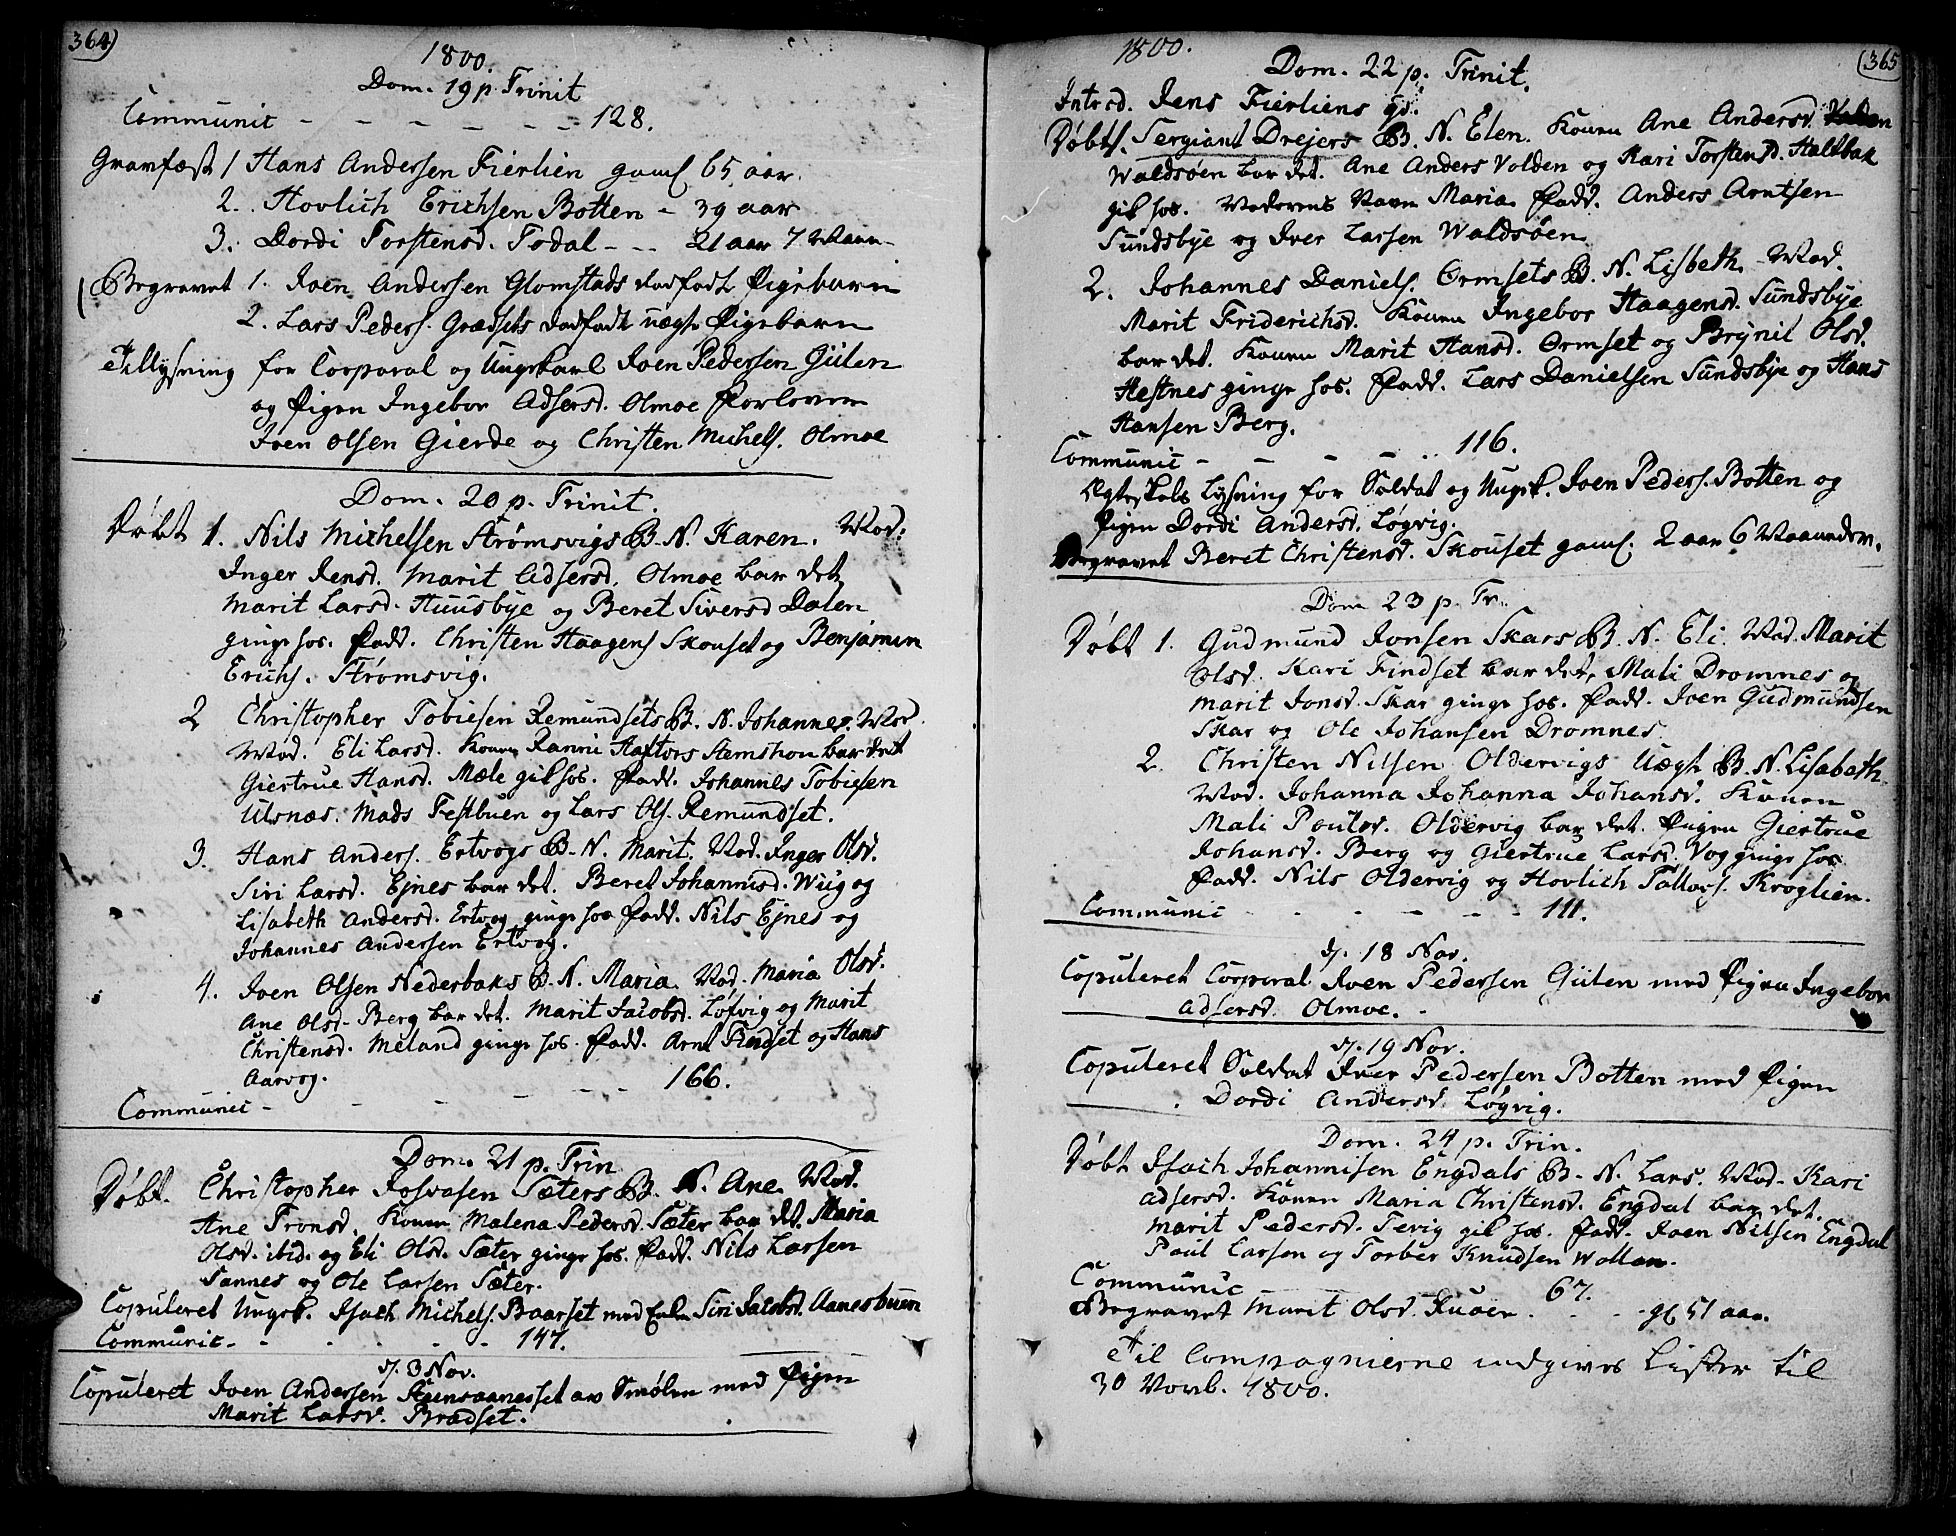 364)
1800.
Dom. 19 p. Trinit
Communic - - - - - - 128.
Gravfæst 1 Hans Andersen Fierlien gaml 65 aar.
2. Hovlich Erichsen Botten - 39 aar
3. Dordi Torstensd. Todal - - 21 aar 7 Maan-
Begravet 1. Joen Andersen Glomstads dødfødt Pigebarn
2. Lars Peders. Grædsets dødfødt uægte Pigebarn
Tillysning for Corporal og Ungekarl Joen Pedersen Gülen
og Pigen Ingebor Adsersd. Olmoe Forlovere
Joen Olsen Gierde og Christen Michels. Olmoe
Dom. 20 p. Trinit.
Døbt 1. Nils Michelsen Strømsvigs B. N. Karen. Mod:
Inger Jensd. Marit Adsersd. Olmoe bar det
Marit Larsd. Huusbye og Beret Siversd Dalen
ginge hos. Fadd. Christen Haagens Skouset og Benjamin
Erichs. Strømsvig.
2 Christopher Tobiesen Remundsets B. N. Johannes. Mod.
Mod. Eli Larsd. Konen Ranni Haftors Stemshou bar det
Giertrue Hansd. Mæle gik hos. Fadd. Johannes Tobiesen
Ulsnæs. Mads Festbuen og Lars Ols. Remundset.
3. Hans Anders. Ertvogs B. N. Marit. Mod. Inger Olsd.
Siri Larsd. Ejnes bar det. Beret Johannisd. Wüg og
Lisabeth Andersd. Ertvog ginge hos Fadd. Nils Ejnes og
Johannes Andersen Ertvog.
4. Joen Olsen Nederbaks B. N. Maria. Mod. Maria Olsd.
Ane Olsd. Berg bar det. Marit Jacobsd. Løfvig og Marit
Christensd. Meland ginge hos. Fadd. Arnt Findset og Hans
Aarvog.
Communic - - - - - - 166.
Dom. 21 p. Trin
Døbt. Christopher Josvasen Sæters B. N. Ane. Mod.
Ane Tronsd. Konen Malena Pedersd. Sæter bar det. Maria
Olsd. ibid. og Eli Olsd. Sæter ginge hos. Fadd. Nils Larsen
Sannes og Ole Larsen Sæter.
Copuleret Ungk. Isach Michels. Baarset med Enke Siri Jacobsd. Aanesbuen
Communic - - - - - - 147.
d. 3 Nov.
Copuleret Joen Andersen Steensaanesset av Smølen med Pigen
Marit Larsd. Brædset.
1800.
(365
Dom. 22 p. Trinit.
Introd. Jens Fierliens
Døbt 1. Sergiant Drejers B. N. Elen. Konen Ane Andersd.
Waldsøen bar det. Ane Anders Volden og Kari Torstensd. Haltbak
gik hos. Moderens Navn Maria. Fadd. Anders Arntsen
Sundsbye og Iver Larsen Waldsøen.
2. Johannes Daniels. Ormsets B. N. Lisbeth. Mod.
Marit Friderichsd. Konen Ingebor Haagensd. Sundsbye
bar det. Konen Marit Hansd. Ormset og Brynil Olsd.
Hestnes ginge hos. Fadd. Lars Danielsen Sundsbye og Hans
Hansen Berg.
Communic - - - - 116.
Ægteskabs Lysning for Soldat og Ungk. Joen Peders. Botten og
Pigen Dordi Andersd. Løgvig.
Begravet Beret Christensd. Skouset gaml. 2 aar 6 Maaneder.
Dom 23 p. Tr.
Døbt 1. Gudmund Jonsen Skars B. N. Eli Mod. Marit
Olsd. Kari Findset bar det, Mali Dromnes og
Marit Jonsd. Skar ginge hos. Fadd. Joen Gudmundsen
Skar og Ole Johansen Dromnes.
2. Christen Nilsen Oldervigs Uægt. B. N. Lisabeth.
Mod. Johanna Johanna Johansd. Konen
Mali Poulsd. Oldervig bar det. Pigen Giertrue
Johansd. Berg og Giertrue Larsd. Vog ginge hos
Fadd. Nils Oldervig og Hovlich Tallovs. Kroglien.
Communic - - - - - - 111.
d. 18 Nov.
Copuleret Corporal Joen Pedersen Gülen med Pigen Ingebor
Adsersd. Olmoe.
d. 19 Nov.
Copuleret Soldat Iver Pedersen Botten med Pigen
Dordi Andersd. Løgvig.
Dom. 24 p. Trin.
Døbt Isach Johannisen Engdals B. N. Lars. Mod. Kari
Adsersd. Konen Maria Christensd. Engdal bar det.
Marit Pedersd. Tevig gik hos. Fadd. Joen Nilsen Engdal
Poul Larsen og Torber Knudsen Wollan.
Communic - - - - 67.
Begravet Marit Olsd. Ruøen. - - gl 51 aar.
Til Compagnierne indgives Lister til
30 Novb. 1800.